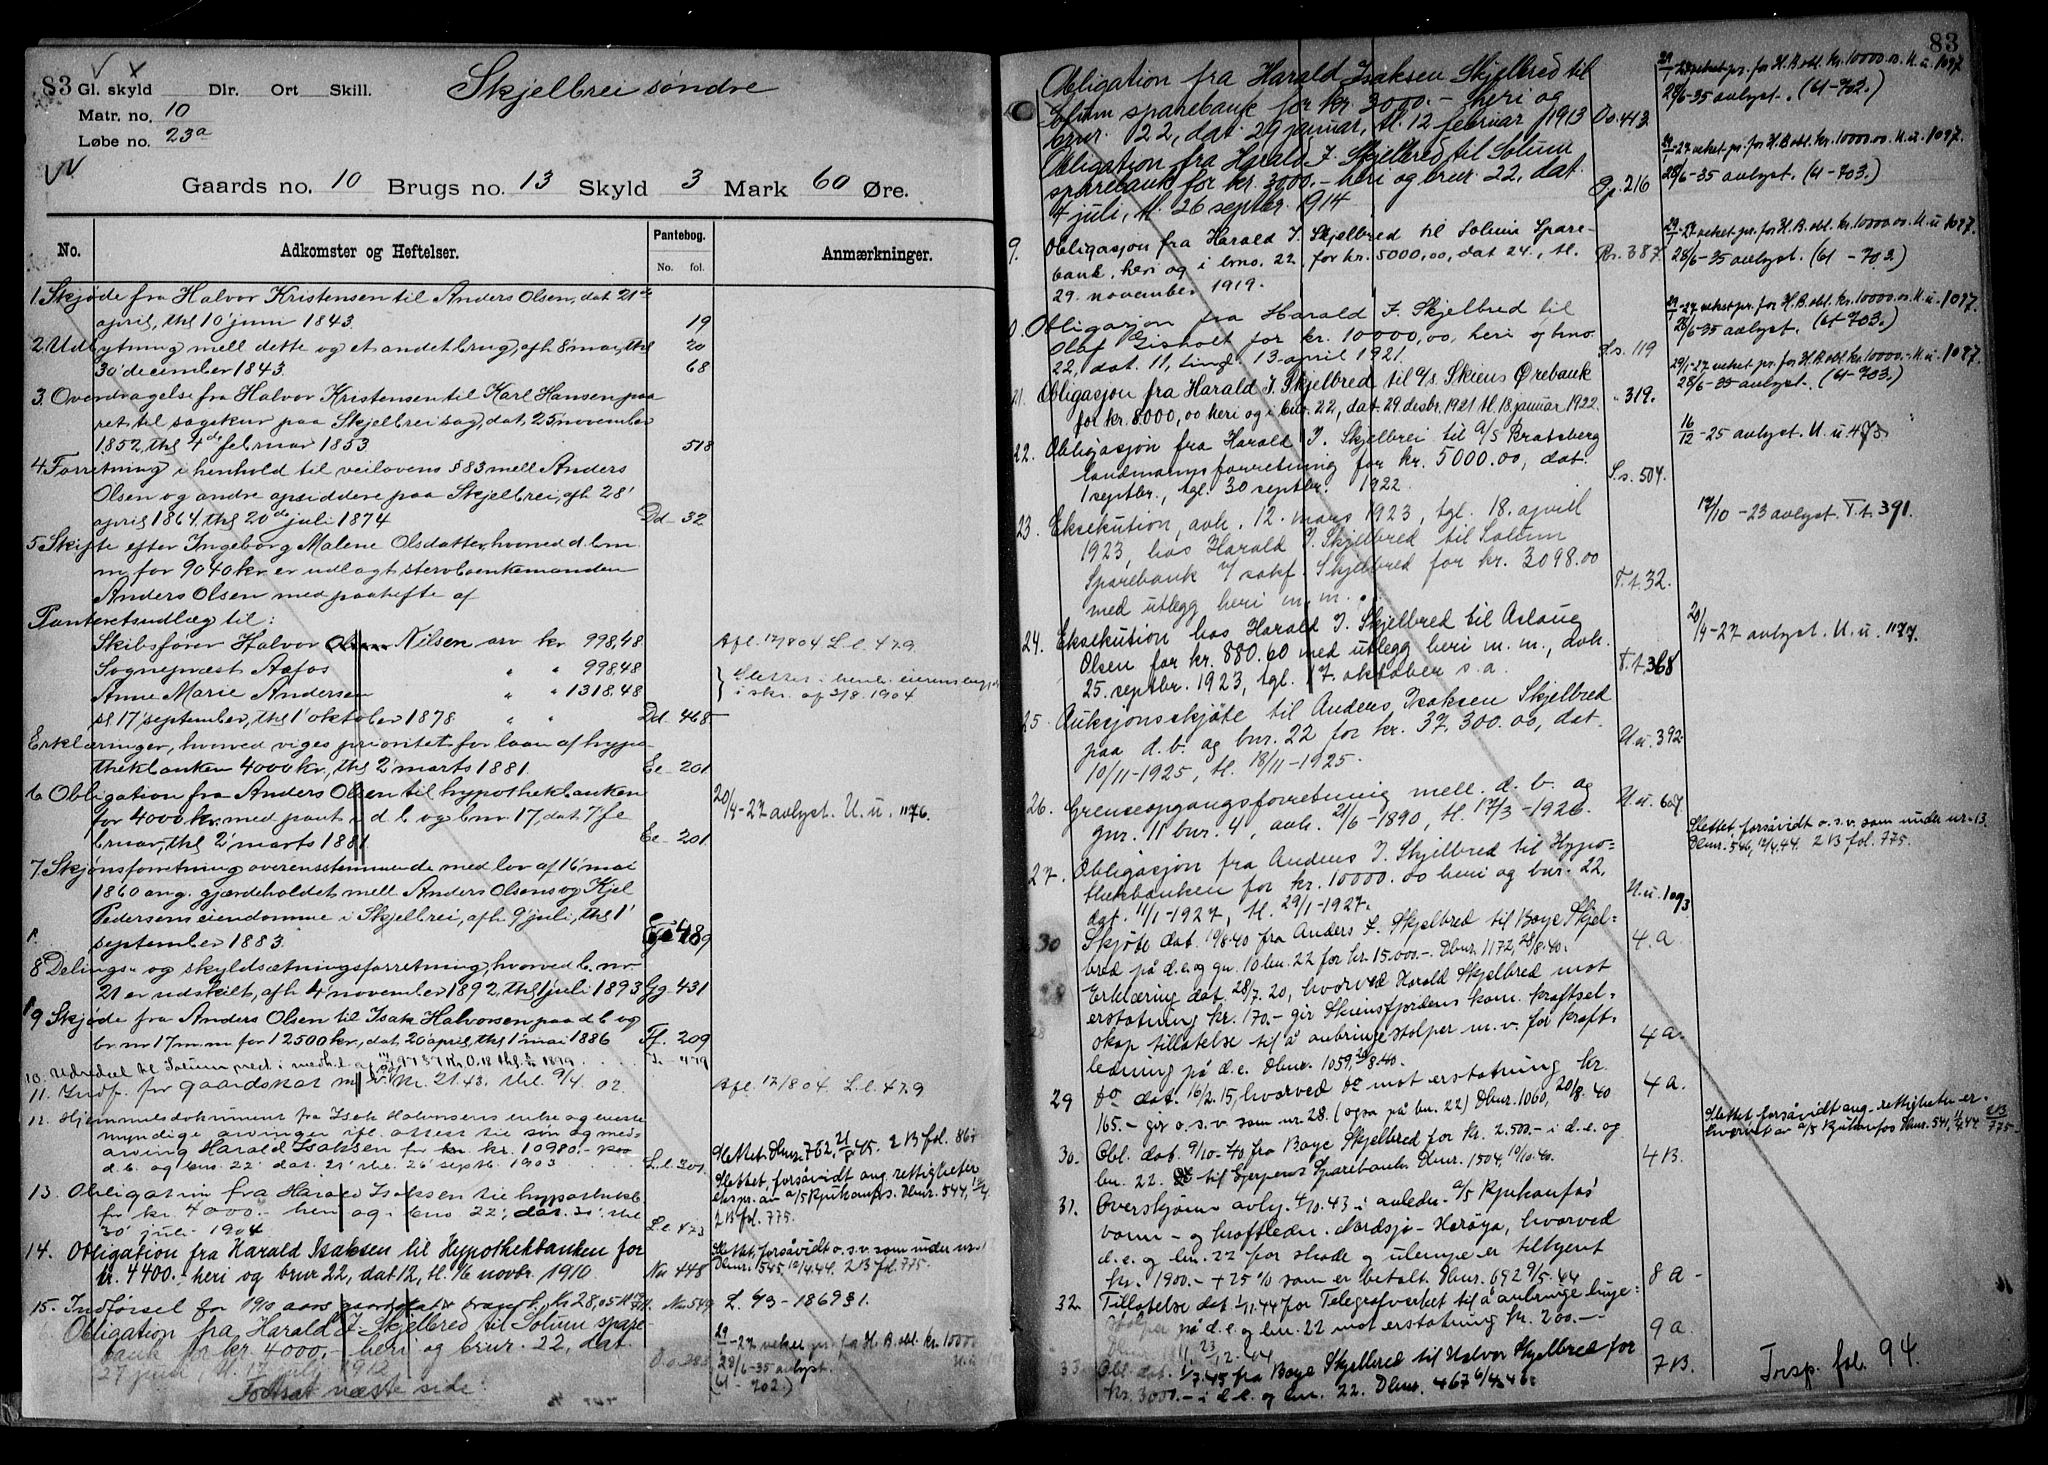 83
Gl. skyld Dlr. Ort Skill.
Skjelbrei søndre
Matr. no. 10
Løbe no. 23a
Gaards no. 10 Brugs no. 13 Skyld 3 Mark 60 Øre.
No. Adkomster og Heftelser. Pantebog. No. fol. Anmærkninger.
1 Skjøde fra Halvor Kristensen til Anders Olsen, dat 21de
april, thl 10' juni 1843. 19
2 Udbytning mell dette og et andet brug, afh 8' mai, thl 20
30' december 1843 68
3. Overdragelse fra Halvor Kristensen til Karl Hansen paa
ret til sagskur paa Skjelbrei sag, dat, 25 november
1852, thl 4de februar 1853. 518
4 Forretning i henhold til veilovens § 83 mell Anders
Olsen og andre opsiddere paa Skjelbrei, afh 28'
april 1864, thl 20de juli 1874 Dd 32
5 Skifte efter Ingeborg Malene Olsdatter, hvorved d. b m
m for 9040 kr er udlagt stervboenkemanden
Anders Olsen med paahefte af
Panteretsudlæg til:
Skibsfører Halvor Nilsen arv kr 998,48 Afl. 17/8 04 L.l. 479
Sogneprest Aafos " " 998,48
Anne Marie Andersen " " 1318,48 Slettet i henh. eierens
i skr. af 3/8. 1904
sl 17' september, thl 1' oktober 1878 " " Dd. 468
Erklæringer, hvorved viges prioritet for laan af hypo
thekbanken 4000 kr, thl 2' marts 1881. Ee 201
6 Obligation fra Anders Olsen til hypothekbanken
for 4000 kr. med pant i d b og b nr 17, dat 7' fe
bruar, thl 2' marts 1881 Ee 201 20/4-27 avlyst. U. u. 1176.
7. Skjønsforretning overensstemmende med lov af 16' mai
1860 ang. gjærdeholdet mell Anders Olsens og Kjel
Pedersens eiendomme i Skjelbrei, afh 9' juli, thl 1'
september 1883. 489
8 Delings- og skyldsætningsforretning, hvorved b. nr
21 er udskilt, afh 4 november 1892, thl 1 juli 1893 Gg. 431
9 Skjøde fra Anders Olsen til Isak Halvorsen paa d b og
br. nr 17 m. m for 12500 kr, dat 20' april, thl 1' mai 1886 Ff. 209
10. Udredsel til Solum 479
11. Indf. for gaardskat m. v. Kr. 21.43. thl. 9/4. 02. Afl. 17/8 04 L. l. 479
12. Hjemmelsdokument fra Isak Halvorsens enke og eneste
myndige arvinger til søn og med-
arving Harald Isaksen for kr. 10980.- paa
d.b. og bnr. 22' dat. 21' thl. 26' septb. 1903 L.l. 201 Slettet. Dbnr. 762, 21/ 45. 2 B fol.
13. Obligation fra Harald Isaksen til hypothekb.
for kr. 4000.- heri og bnr. 22', dat. 30', thl.
30' juli 1904 L.l. 473
Slettet, forsåvidt ang. rettigheter
ekspr. av A/S Rjukanfos. Dbnr. 544,
2 B fol. 775.
14. Obligation fra Harald Isaksen til Hypothekbanken for
kr. 4400.-, heri og bnr 22, dat 12, tl. 16 novbr. 1910. Nn 448
Slettet, forsåvidt o. s. v. som under nr.
Dbnr. 545, 12/4.44. 2 B fol. 775.
15. Indførsel for 1910 aars gaardskat Kr 28,05 Nn 549 L. 93-1869 31.
Obligation fra Harald I. Skjelbred til Solum spare-
bank for kr. 4000.- heri og bnr. 22, dat.
27 juni, tl. 17 juli 1912
29/1-27 veket pr. for H. B. obl. kr. 10000
28/6-35 avlyst.
(61-702.)
Fortsat næste side.
83
Obligation fra Harald Isaksen Skjelbred til
Solum sparebank for kr. 3000.- heri og
bnr. 22, dat. 29 januar, tl. 12 februar 1913 Oo. 443
29/1-27 veket pr. for H. B. obl. kr. 10000.00. U. u. 1097.
28/6-35 avlyst. (61-702.)
Obligation fra Harald I. Skjelbred til Solum
sparebank for kr. 3000.- heri og bnr. 22, dat.
4 juli, tl. 26 septbr. 1914 216
29/1-27 veket pr. for H. B obl. kr. 10000.00. U. u. 1097.
28/6-35 avlyst. (61-703.)
9. Obligasjon fra Harald I. Skjelbred til Solum Spare-
bank, heri og i bno. 22, for kr. 5000,00, dat 24., tl.
29. november 1919. Rr. 387.
29/1-27 veket pr. for H. B. obl. kr. 10000.00. U. u 1097.
28/6-35 avlyst. (61-703.)
0. Obligasjon fra Harald I. Skjelbred til
Olaf Gisholt for kr. 10000,00, heri og bno.
22, dat. 11, tingl. 13 april 1921. S.s. 119
29/1-27 veket pr. for H. B. obl. kr. 10000.00. U. u. 1097.
28/6-35 avlyst. (61-703.)
21. Obligasjon fra Harald I. Skjelbred til A/S. Skiens Ørebank
for kr. 8000,00 heri og i bnr. 22, dat. 29. desbr. 1921 tl. 18. januar 1922. " 319.
29/1-27 veket pr. for H. B. obl. kr. 10000.- U. u. 1097.
28/6-35 avlyst. (61-703.)
22. Obligasjon fra Harald I. Skjelbrei til A/S Bratsberg
landmandsforretning for kr. 5000.00, dat.
1 septbr., tgl. 30 septbr. 1922. S.s. 504.
16/12-25 avlyst. U. u. 478
23. Eksekution, avh. 12. mars 1923, tgl. 18. april
1923, hos Harald I. Skjelbred til Solum
Sparebank v/ sakf. Skjelbred for kr. 3098.00
med utlegg heri m. m. T.t. 32.
17/10-23 avlyst. T.t. 391.
24. Eksekution hos Harald I. Skjelbred til Aslaug
Olsen for kr. 880.60 med utlegg heri m. m., avh.
25. septbr. 1923, tgl. 17. oktober s. a. T.t. 368
20/4-27 avlyst. U. u. 1177.
25. Auksjonsskjøte til Anders Isaksen Skjelbred
paa d. b. og bnr. 22 for kr. 37,300.00, dat.
10/11-1925, tl. 18/11-1925. U. u. 392
26. Grenseopgangsforretning mell. d. b. og
gnr. 11 bnr. 4, avh. 21/6-1890, tl. 17/3-1926. U. u. 607
27. Obligasjon fra Anders I. Skjelbred til Hypo-
thekbanken for kr. 10000.00 heri og bnr. 22,
dat. 11/1-1927, tl. 29/1-1927. U. u. 1093
Slettet, forsåvidt o. s. v. som under nr. 13.
Dbnr. 546, 12/4.44. 2 B fol. 775.
30 Skjøte dat. 19/8.40 fra Anders I. Skjelbred til Boye Skjel-
bred på d.e. og gn. 10 bn. 22 for kr. 15.000.-. Dbnr. 1172, 28/8.40. 4. a.
28 Erklæring dat. 28/7.20, hvorved Harald Skjelbred mot
erstatning kr. 170.- gir Skiensfjordens kom. kraftsel-
skap tillatelse til å anbringe stolper m. v. for kraft-
ledning på d. e. Dbnr. 1059, 20/8.40. 4 a.
29 do dat. 16/2.15, hvorved do mot erstatning kr.
165.- gir o. s. v. som nr. 28. (også på bn. 22) Dbnr. 1060, 20/8. 40 4 a.
30. Obl. dat. 9/10-40 fra Boye Skjelbred for kr. 2.500.- i d. e. og
bn. 22. til Gjerpens Sparebank. Dbnr. 1504, 10/10.40. 4 B.
Slettet forsåvidt ang. rettigheter er-
hvervet av A/S Rjukanfos Dbnr. 541, 12/4.44 2B/775.
31. Overskjønn avhj. 4/10.43 i anledn. A/S Rjukanfos'
vann- og kraftledn. Nordsjø-Herøya, hvorved
d. e. og bn. 22 for skade og ulempe er tilkjent
kr. 1900.- + 25 % som er betalt. Dbnr. 692 9/5.44 8 a
32. Tillatelse dat. 1/11.44 for Telegrafverket til å anbringe linje-
stolper på d. e. og bn. 22 mot erstatning kr. 200.-
Dbnr. 23/12.44 9 a
33 Obl. dat. 1/7.45 fra Boye Skjelbred til Halvor Skjelbred for
kr. 3000.- i d. e. og bn. 22. Dbnr. 467 6/4.46. 7 B.
Trsp. fol. 94.